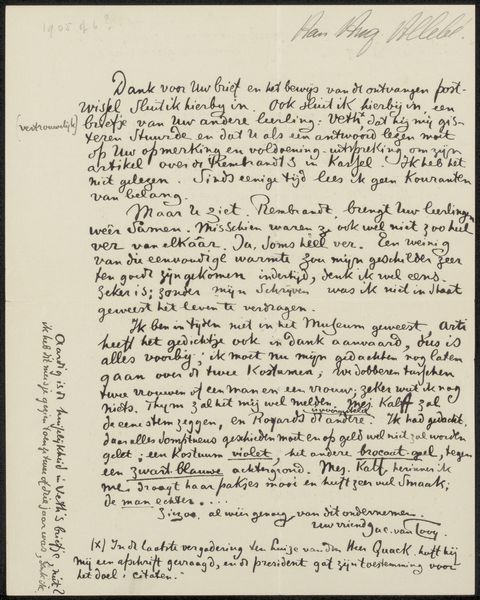 1905 of 6?
Aan Aug Allebé.
Dank voor Uw brief en het bewijs van de ontvangen post-
wisel sluit ik hierby in. Ook sluit ik hierby in een
(vertrouwelijk) briefje van Uw andere leerling: Veth: dat hij mij gis-
teren stuurde en dat U als een antwoord lezen moet
op Uw opmerking en voldoening-uitspreking om zijn
artikel over de Rembrandts in Kassel. Ik heb het
niet gelezen. Sinds eenige tijd lees ik geen Kouranten
van belang.
Maar U ziet. Rembrandt brengt Uw leerlingen
weêr samen. Misschien waren ze ook wel niet zoo heel
ver van elkaâr. Ja, soms héél ver. Een weinig
van die eenvoudige warmte zou mijn geschilder zeer
ten goede zijn gekomen indertijd, denk ik wel eens.
Zeker is; zonder mijn Schrijven was ik niet in staat
geweest het leven te verdragen.
Ik ben in tijden niet in het Museum geweest, Arti
heeft het gedichtje ook in dank aanvaard, dus is
alles voorbij: ik moet nu mijn gedachten nog laten
gaan over de twee Kostumen; we dobberen tusschen
twee vrouwen of een man en een vrouw: zeker weet ik nog
niets. Thym zal het mij wel melden. Mej. Kalff zal
de eene stem zeggen, en Royards de andere. Ik had gedacht,
daar alles dompteus geschieden moet en op geld wel niet zal worden
gelet: een kostuum violet, het andere brocaat-geel, tegen
een zwart-blauwe achtergrond. Mej. Kalf, herinner ik
me, draagt haar pakjes mooi en heeft zeer veel smaak;
de man echter....
Ziezoo. al weêr genoeg van dit ondernemen.
Uw vriend Jac. van Looy.
[x] In de laatste vergadering ten huize van den Heer Quack heeft hij
mij een afschrift gevraagd, en de president gaf zijn toestemming voor
het doel: citaten.
Aardig is de huiselijkheid in Veth's briefje niet?
ik heb dit meisje gezien toen ze twee of drie jaar was, denk ik.